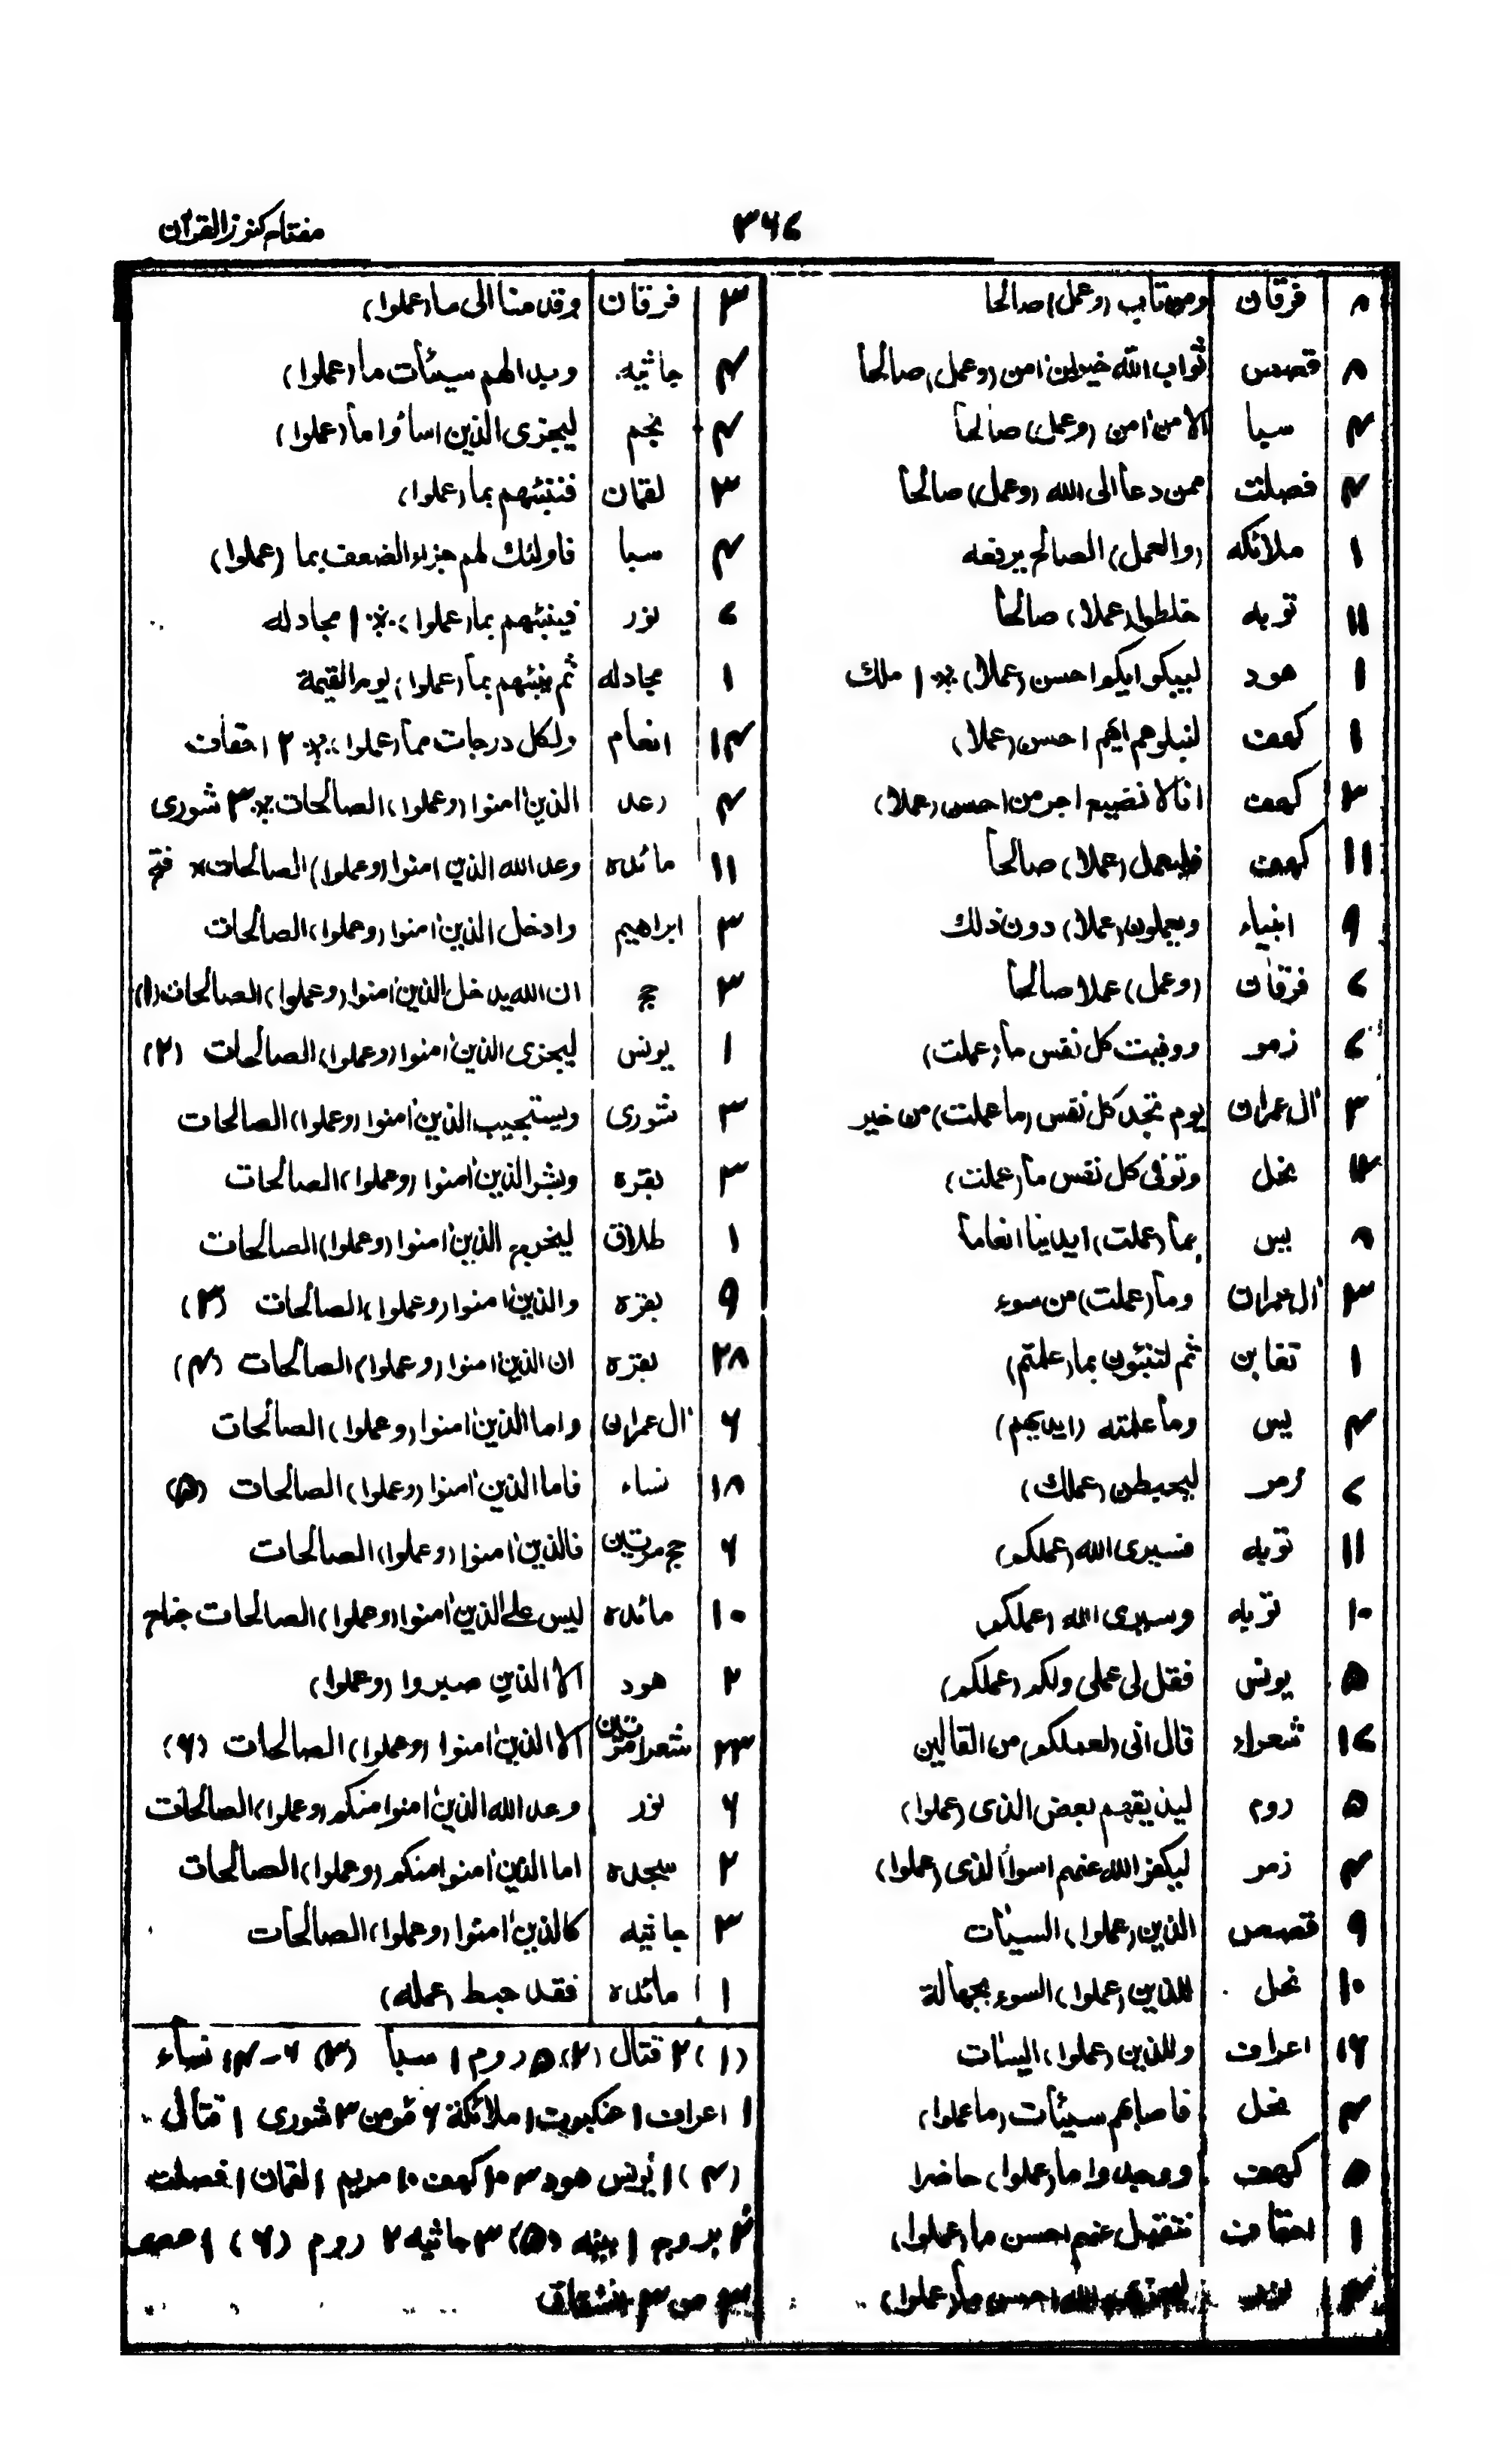 ۳۶۷
مفتاح کنوز القرآن
۸ فرقان ومن تاب (وعمل) صالحا
۸ قصص ثواب الله خیر لمن امن (وعمل) صالحا
۴ سبا الا من امن (وعمل) صالحا
۴ فصلت ممن دعا الی الله (وعمل) صالحا
۱ ملائکه (والعمل) الصالح یرفعه
۱۱ توبه خلطوا (عملا) صالحا
۱ هود لیبلوکم ایکم احسن (عملا) ۱ ملک
۱ کهف لنبلوهم ایهم احسن (عملا)
۳ کهف انا لا نضیع اجر من احسن (عملا)
۱۱ کهف فلیعمل (عملا) صالحا
۹ انبیاء ویعملون (عملا) دون ذلک
۶ فرقان (وعمل) عملا صالحا
۷ زمر ووفیت کل نفس ما (عملت)
۳ آل عمران یوم تجد کل نفس (ما عملت) من خیر
نحل وتوفی کل نفس ما (عملت)
۸ یس بما (عملت) ایدینا انعاما
۳ آل عمران وما (عملت) من سوء
۱ تغابن ثم لتنبئون بما (عملتم)
۴ یس وما عملته (ایدیهم)
۷ زمر لیحبطن (عملک)
۱۱ توبه فسیری الله (عملکم)
۱۰ توبه وسیری الله (عملکم)
۵ یونس فقل لی عملی ولکم (عملکم)
۱۶ شعراء قال انی (لعملکم) من القالین
۵ روم لیذیقهم بعض الذی (عملوا)
۴ زمر لیکفر الله عنهم اسوأ الذی (عملوا)
۹ قصص الذین (عملوا) السیئات
۱۰ نحل للذین (عملوا) السوء بجهالة
۱۶ اعراف وللذین (عملوا) السیئات
۴ نحل فاصابهم سیئات (ما عملوا)
۵ کهف ووجدوا ما (عملوا) حاضرا
۱ احقاف نتقبل عنهم احسن ما (عملوا)
نور لیجزیهم الله احسن ما (عملوا)
۳ فرقان وقدمنا الی ما (عملوا)
۴ جاثیه وبدا لهم سیئات ما (عملوا)
۴ نجم لیجزی الذین اساءوا ما (عملوا)
۳ لقمان فننبئهم بما (عملوا)
۴ سبا فاولئک لهم جزاء الضعف بما (عملوا)
۷ نور فینبئهم بما (عملوا) ۱ مجادله
۱ مجادله ثم ینبئهم بما (عملوا) یوم القیمة
۱۴ انعام ولکل درجات مما (عملوا) ۲ احقاف
۴ رعد الذین امنوا (وعملوا) الصالحات ۳ شوری
۱۱ مائده وعد الله الذین امنوا (وعملوا) الصالحات فتح
۳ ابراهیم وادخل الذین امنوا (وعملوا) الصالحات
۳ حج ان الله یدخل الذین امنوا (وعملوا) الصالحات (۱)
۱ یونس لیجزی الذین امنوا (وعملوا) الصالحات (۲)
۳ شوری ویستجیب الذین امنوا (وعملوا) الصالحات
۳ بقره وبشر الذین امنوا (وعملوا) الصالحات
۱ طلاق لیخرج الذین امنوا (وعملوا) الصالحات
۹ بقره والذین امنوا (وعملوا) الصالحات (۳)
۲۸ بقره ان الذین امنوا (وعملوا) الصالحات (۴)
۶ آل عمران واما الذین امنوا (وعملوا) الصالحات
۱۸ نساء فاما الذین امنوا (وعملوا) الصالحات (۵)
۶ حج مرتین فالذین امنوا (وعملوا) الصالحات
۱۰ مائده لیس علی الذین امنوا (وعملوا) الصالحات جناح
۲ هود الا الذین صبروا (وعملوا)
۲۳ شعرا مرتین الا الذین امنوا (وعملوا) الصالحات (۶)
۶ نور وعد الله الذین امنوا منکم (وعملوا) الصالحات
۲ سجده اما الذین امنوا منکم (وعملوا) الصالحات
۳ جاثیه کالذین امنوا (وعملوا) الصالحات
۱ مائده فقد حبط (عمله)
(۱) ۲ قتال (۲) ۵ روم ۱ سبا (۳) ۶-۱۴ نساء
۱ اعراف ۱ عنکبوت ۱ ملائکة ۶ مؤمن ۳ شوری ۱ قتال
(۴) ۱ یونس هود ۳ ۱۰ کهف ۱۰ مریم ۱ لقمان ۱ فصلت
بروج ۱ بینه (۵) ۳ جاثیه ۲ روم (۶) ۱ عصر
ص ۳ انشقاق